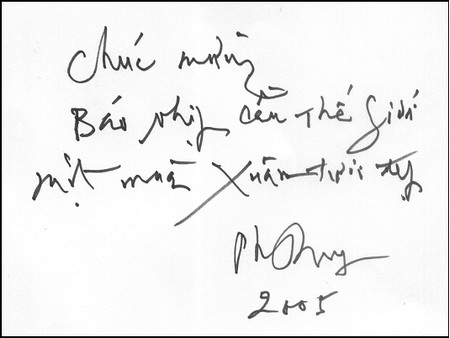 Chúc mừng
Báo nhịp cầu Thế Giới
một mùa Xuân tươi đẹp
PhDuy
2005